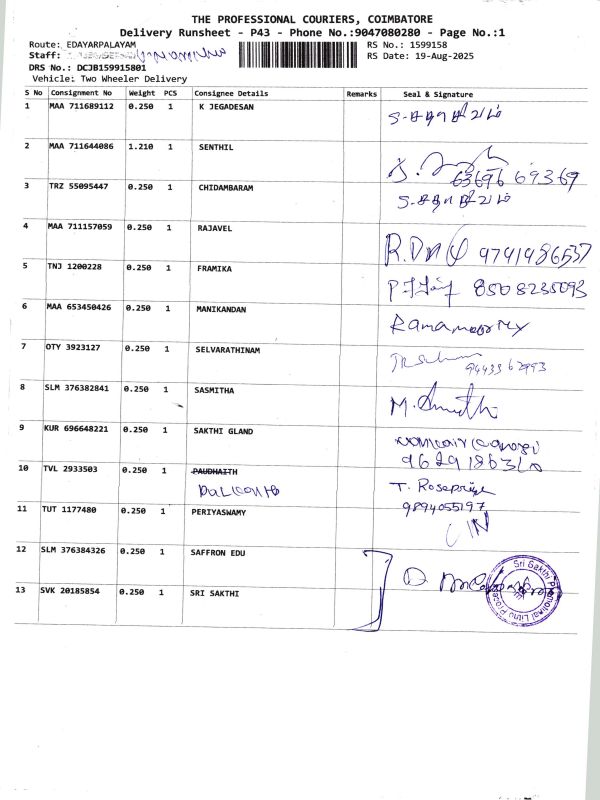 THE PROFESSIONAL COURIERS, COIMBATORE
Delivery Runsheet - P43 - Phone No.:9047080280 - Page No.:1
Route: EDAYARPALAYAM RS No.: 1599158
Staff: RS Date: 19-Aug-2025
DRS No.: DCJB159915801
Vehicle: Two Wheeler Delivery
S No Consignment No Weight PCS Consignee Details Remarks Seal & Signature
1 MAA 711689112 0.250 1 K JEGADESAN
2 MAA 711644086 1.210 1 SENTHIL
63696 69369
3 TRZ 55095447 0.250 1 CHIDAMBARAM
4 MAA 711157059 0.250 1 RAJAVEL
9741986537
5 TNJ 1200228 0.250 1 FRAMIKA
8508235093
6 MAA 653450426 0.250 1 MANIKANDAN
7 OTY 3923127 0.250 1 SELVARATHINAM
8 SLM 376382841 0.250 1 SASMITHA
9 KUR 696648221 0.250 1 SAKTHI GLAND
10 TVL 2933503 0.250 1 PAUDHAITH T. Rosepriya
9894055197
11 TUT 1177480 0.250 1 PERIYASWAMY
12 SLM 376384326 0.250 1 SAFFRON EDU
13 SVK 20185854 0.250 1 SRI SAKTHI
Sri Sakthi